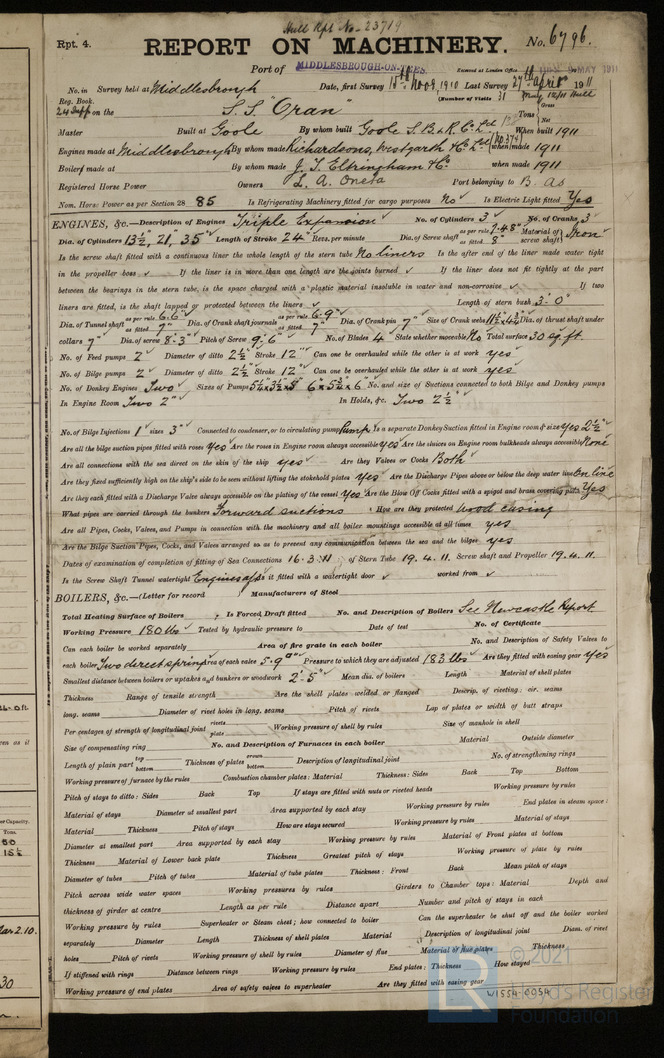 Hull Rpt No. 23719
Rpt. 4.
REPORT ON MACHINERY. No. 6796.
Port of MIDDLESBROUGH-ON-TEES Received at London Office MAY 1911
No. in Survey held at Middlesbrough Date, first Survey 15th Nov 1910 Last Survey 27th April 1911
Reg. Book. (Number of Visits 31
24 Supp on the S.S. "Oran" Tons Gross Net
Master Built at Goole By whom built Goole S.B. & R. Co Ltd When built 1911
Engines made at Middlesbrough By whom made Richardsons, Westgarth & Co Ld when made 1911
Boilers made at By whom made J. T. Eltringham & Co when made 1911
Registered Horse Power Owners L. A. Oneto Port belonging to B. As
Nom. Horse Power as per Section 28 85 Is Refrigerating Machinery fitted for cargo purposes No Is Electric Light fitted Yes
ENGINES, &c.—Description of Engines Triple Expansion No. of Cylinders 3 No. of Cranks 3
Dia. of Cylinders 13½", 21", 35" Length of Stroke 24" Revs. per minute Dia. of Screw shaft as per rule 7.48" as fitted 8" Material of screw shaft Iron
Is the screw shaft fitted with a continuous liner the whole length of the stern tube No liners Is the after end of the liner made water tight
in the propeller boss ✓ If the liner is in more than one length are the joints burned ✓ If the liner does not fit tightly at the part
between the bearings in the stern tube, is the space charged with a plastic material insoluble in water and non-corrosive ✓ If two
liners are fitted, is the shaft lapped or protected between the liners ✓ Length of stern bush 3'-0"
Dia. of Tunnel shaft as per rule 6.6" as fitted 7" Dia. of Crank shaft journals as per rule 6.9" as fitted 7" Dia. of Crank pin 7" Size of Crank webs Dia. of thrust shaft under
collars 7" Dia. of screw 8'-3" Pitch of Screw 9'-6" No. of Blades 4 State whether moveable No Total surface 30 sq. ft.
No. of Feed pumps 2 Diameter of ditto 2½" Stroke 12" Can one be overhauled while the other is at work yes
No. of Bilge pumps 2 Diameter of ditto 2½" Stroke 12" Can one be overhauled while the other is at work yes
No. of Donkey Engines Two Sizes of Pumps 5¼"x3½"x5" 6"x5¾"x6" No. and size of Suctions connected to both Bilge and Donkey pumps
In Engine Room Two 2" In Holds, &c. Two 2½"
No. of Bilge Injections 1 sizes 3" Connected to condenser, or to circulating pump Pump Is a separate Donkey Suction fitted in Engine room & size Yes 2½"
Are all the bilge suction pipes fitted with roses Yes Are the roses in Engine room always accessible yes Are the sluices on Engine room bulkheads always accessible None
Are all connections with the sea direct on the skin of the ship yes Are they Valves or Cocks Both
Are they fixed sufficiently high on the ship's side to be seen without lifting the stokehold plates Yes Are the Discharge Pipes above or below the deep water line On line
Are they each fitted with a Discharge Valve always accessible on the plating of the vessel Yes Are the Blow Off Cocks fitted with a spigot and brass covering plate Yes
What pipes are carried through the bunkers Forward suctions How are they protected Wood casing
Are all Pipes, Cocks, Valves, and Pumps in connection with the machinery and all boiler mountings accessible at all times yes
Are the Bilge Suction Pipes, Cocks, and Valves arranged so as to prevent any communication between the sea and the bilges yes
Dates of examination of completion of fitting of Sea Connections 16.3.11 of Stern Tube 19.4.11. Screw shaft and Propeller 19.4.11.
Is the Screw Shaft Tunnel watertight Engines aft Is it fitted with a watertight door ✓ worked from ✓
BOILERS, &c.—(Letter for record ) Manufacturers of Steel
Total Heating Surface of Boilers Is Forced Draft fitted No. and Description of Boilers See Newcastle Report.
Working Pressure 180 lbs Tested by hydraulic pressure to Date of test No. of Certificate
Can each boiler be worked separately Area of fire grate in each boiler No. and Description of Safety Valves to
each boiler Two direct spring Area of each valve 5.9□" Pressure to which they are adjusted 183 lbs Are they fitted with easing gear Yes
Smallest distance between boilers or uptakes and bunkers or woodwork 2'-5" Mean dia. of boilers Length Material of shell plates
Thickness Range of tensile strength Are the shell plates welded or flanged Descrip. of riveting: cir. seams
long. seams Diameter of rivet holes in long. seams Pitch of rivets Lap of plates or width of butt straps
Per centages of strength of longitudinal joint rivets plate Working pressure of shell by rules Size of manhole in shell
Size of compensating ring No. and Description of Furnaces in each boiler Material Outside diameter
Length of plain part top bottom Thickness of plates crown bottom Description of longitudinal joint No. of strengthening rings
Working pressure of furnace by the rules Combustion chamber plates: Material Thickness: Sides Back Top Bottom
Pitch of stays to ditto: Sides Back Top If stays are fitted with nuts or riveted heads Working pressure by rules
Material of stays Diameter at smallest part Area supported by each stay Working pressure by rules End plates in steam space:
Material Thickness Pitch of stays How are stays secured Working pressure by rules Material of stays
Diameter at smallest part Area supported by each stay Working pressure by rules Material of Front plates at bottom
Thickness Material of Lower back plate Thickness Greatest pitch of stays Working pressure of plate by rules
Diameter of tubes Pitch of tubes Material of tube plates Thickness: Front Back Mean pitch of stays
Pitch across wide water spaces Working pressures by rules Girders to Chamber tops: Material Depth and
thickness of girder at centre Length as per rule Distance apart Number and pitch of stays in each
Working pressure by rules Superheater or Steam chest; how connected to boiler Can the superheater be shut off and the boiler worked
separately Diameter Length Thickness of shell plates Material Description of longitudinal joint Diam. of rivet
holes Pitch of rivets Working pressure of shell by rules Diameter of flue Material of flue plates Thickness
If stiffened with rings Distance between rings Working pressure by rules End plates: Thickness How stayed
Working pressure of end plates Area of safety valves to superheater Are they fitted with easing gear
W1554-0054
© 2021
LR Lloyd's Register
Foundation